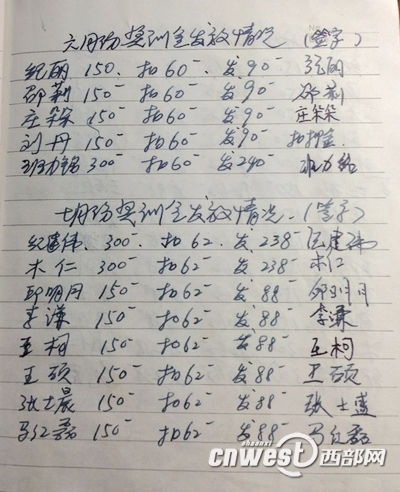 六月份奖训金发放情况 (签字)
纪丽 150. 扣60- 发90-
邵莉 150- 扣60- 发90- 邵莉
庄朵朵 150- 扣60- 发90- 庄朵朵
刘丹 150- 扣60- 发90- 扣押金
300- 扣60- 发240-
七月份奖训金发放情况.(签字)
纪建伟. 300. 扣62. 发. 238-
木仁 300- 扣62- 发 238- 木仁
邱明月 150- 扣62- 发 88- 邱明月
李谦 150- 扣62- 发88- 李谦
王柯 150- 扣62- 发88- 王柯
王硕 150- 扣62- 发88- 王硕
张士晨 150- 扣62- 发88- 张士
马红磊 150- 扣62- 发88-
cnwest 西部网